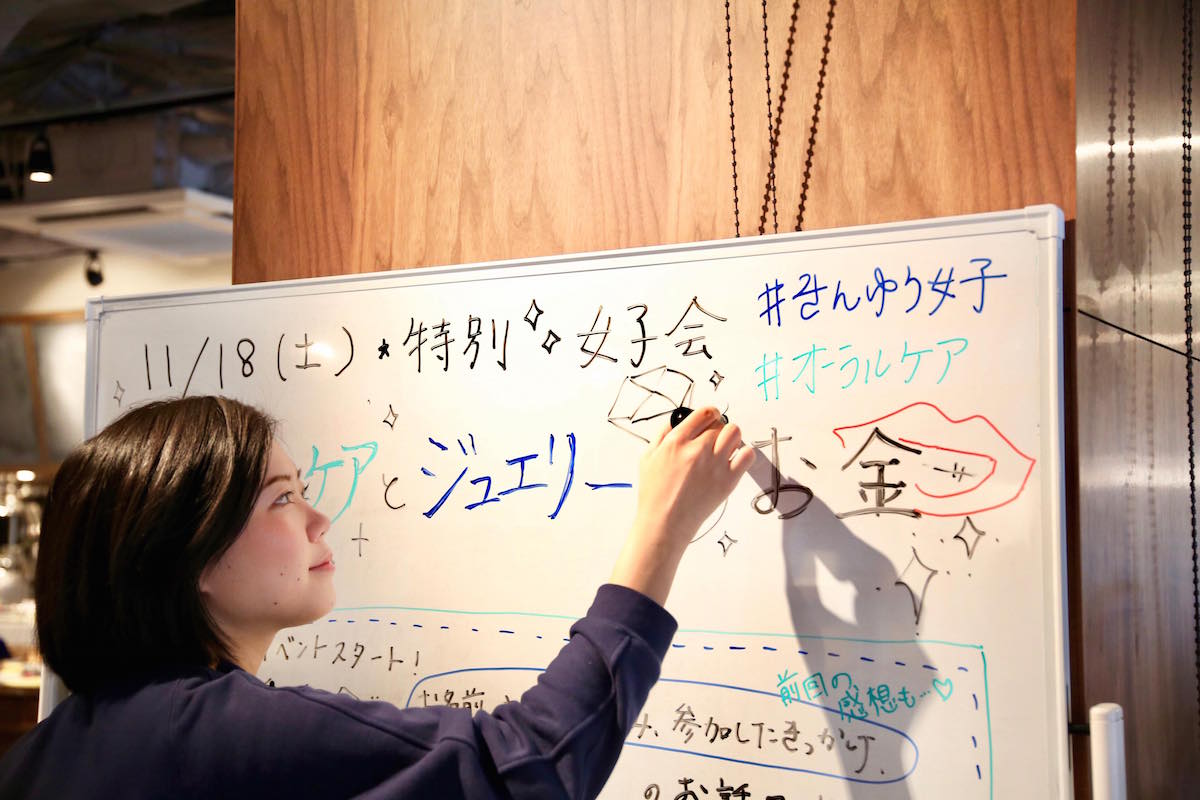 11/18(土)★特別 女子会
#きんゆう女子
#オーラルケア
ケアとジュエリー お金
ベントスタート!
前回の
感想も…♡
お名前
参加したきっかけ
のお話